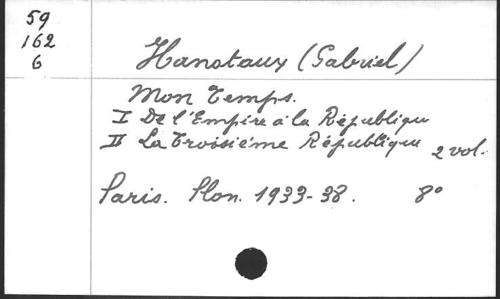 59
162
6
Hanotaux (Gabriel)
Mon Temps.
I De l'Empire à la République
II La Troisième République 2 vol.
Paris. Plon. 1933-38. 8°